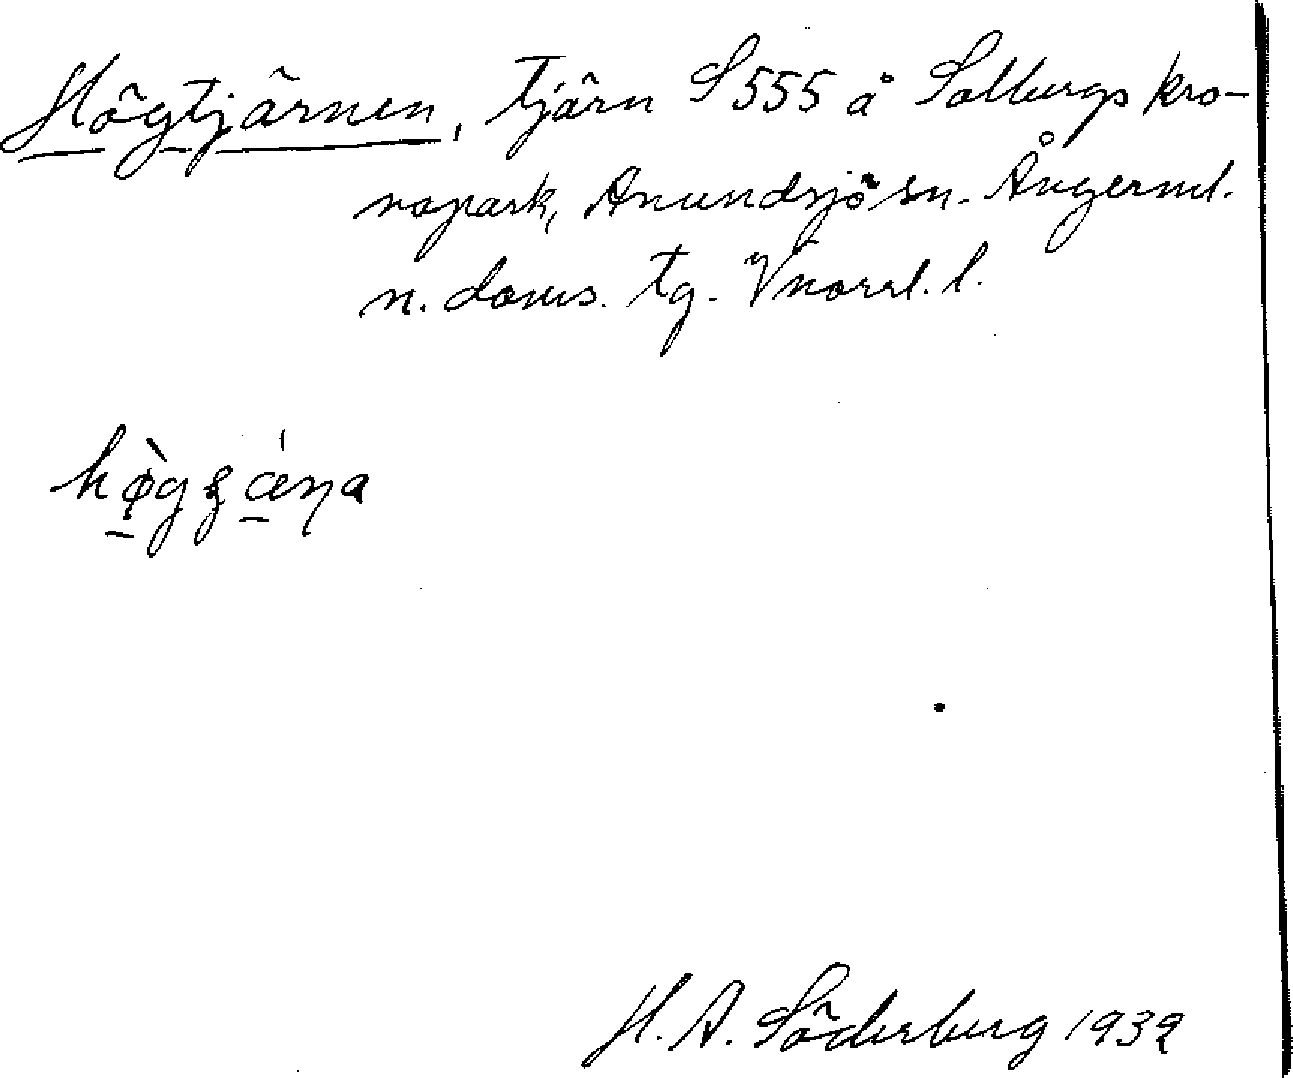 Högtjärnen, tjärn S 555 å Solbergs kro-
nopark, Anundsjö sn. Ångerml.
n. doms. tg. Vnorrl. l.
H. A. Söderberg 1932